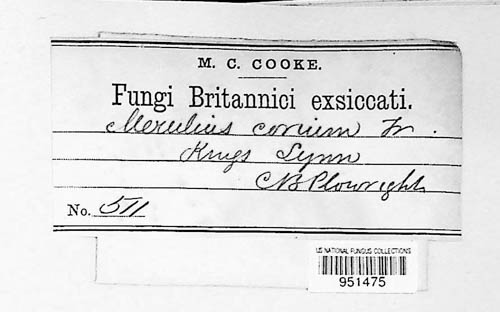 M. C. COOKE.
Fungi Britannici exsiccati.
Merulius corium Fr.
Kings Lynn
C B Plowright
No. 511
US NATIONAL FUNGUS COLLECTIONS
951475